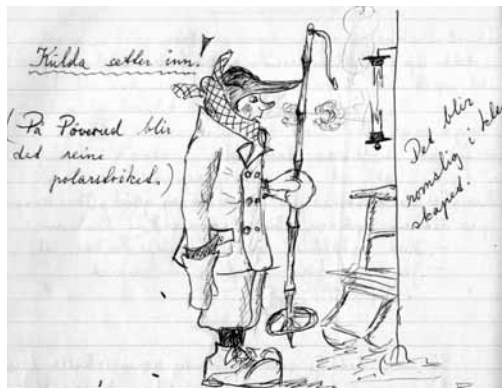 Kulda setter inn.
(På Póverud blir
det reine
polarstrøket.)
Det blir
romslig i kle
skapet.